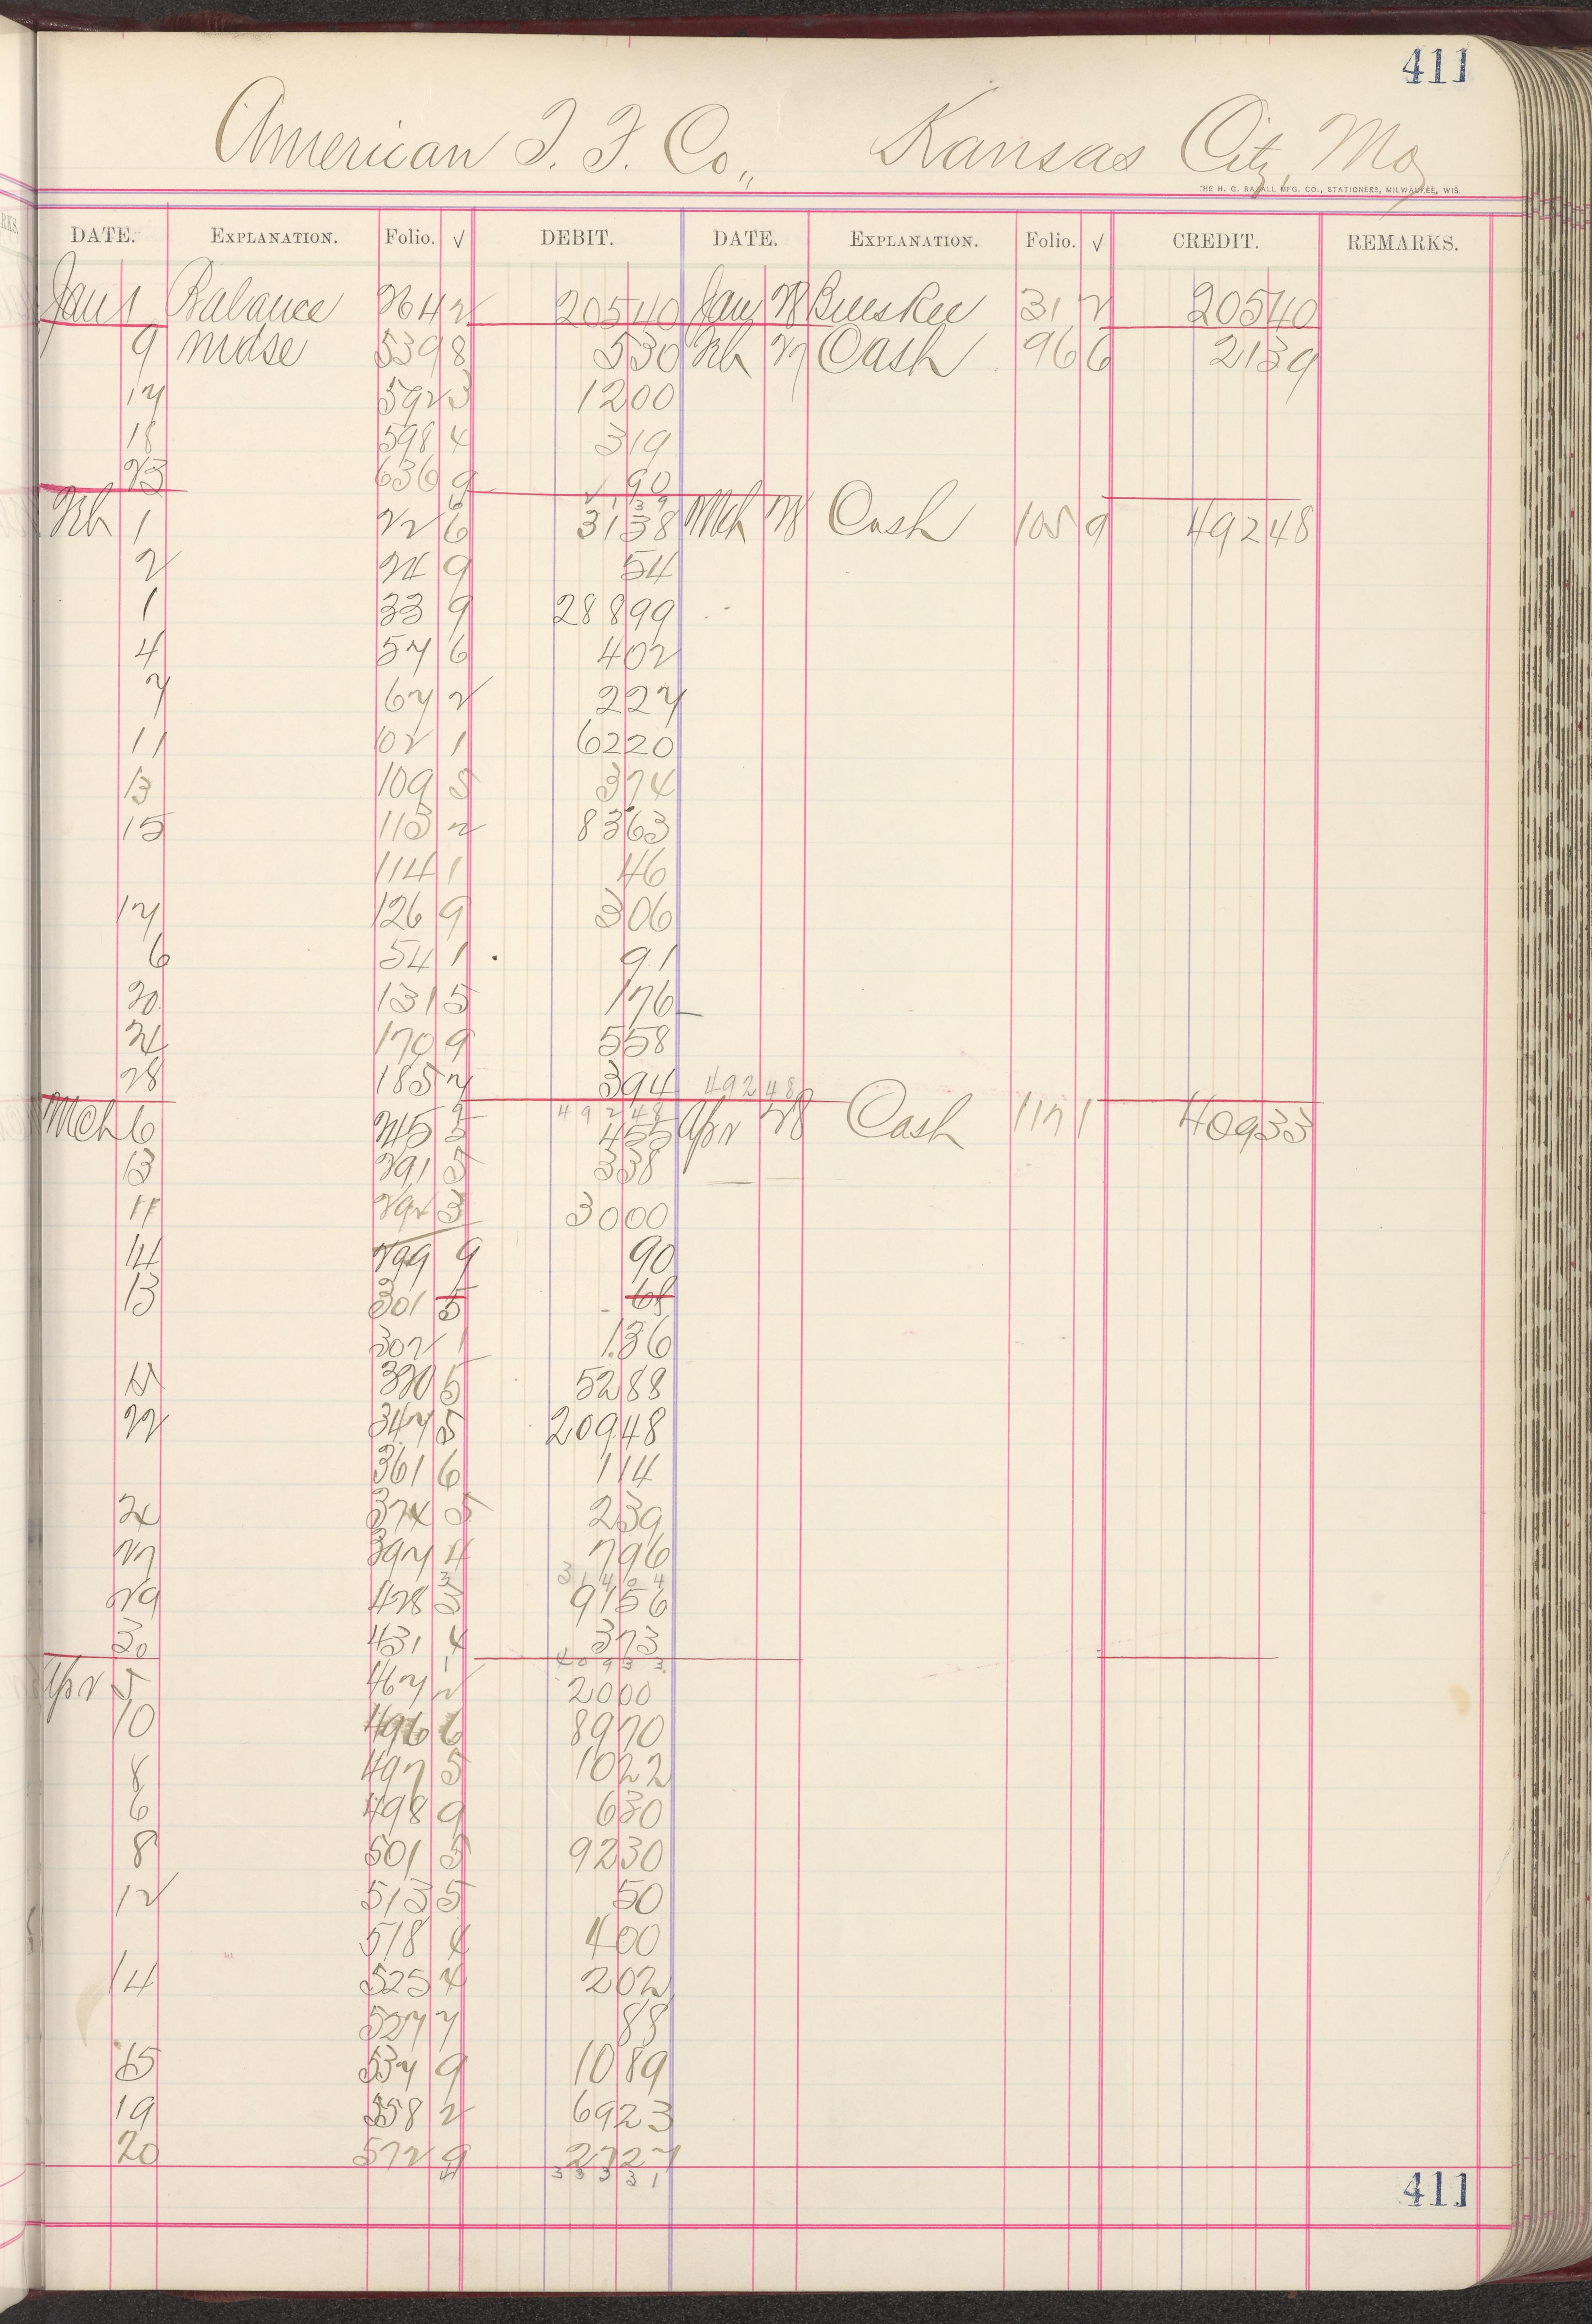 411
American T. F. Co., Kansas City, Mo
THE H. C. RAZALL MFG. CO., STATIONERS, MILWAUKEE, WIS.
DATE. EXPLANATION. Folio. √ DEBIT. DATE. EXPLANATION. Folio. √ CREDIT. REMARKS.
Jan 1 Balance 264 2 205 40 Jan 31 2 205 40
9 mdse 539 8 5 30 Feb 27 Cash 96 6 21 39
17 592 3 12 00
18 598 4 3 19
23 636 9 90
21 39
Feb 1 22 6 31 38 Mch 28 Cash 105 9 492 48
2 24 9 54
1 33 9 288 99
4 57 6 4 02
7 67 2 2 27
11 102 1 62 20
13 109 5 3 74
15 113 2 83 63
114 1 46
17 126 9 3 06
6 54 1 91
20 131 5 1 76
24 170 9 5 58
28 185 7 3 94 492 48
492 48
Mch 6 245 3 4 55 Apr 28 Cash 117 1 409 33
13 291 5 3 38
11 292 3 30 00
14 299 9 90
13 301 5 68
302 1 1 36
330 5 52 88
22 347 5 209 48
361 6 1 14
24 374 5 2 39
27 397 4 7 96
314 04
29 428 3 91 56
30 431 4 3 73
409 33
Apr 5 467 2 20 00
10 496 6 89 70
8 497 5 10 22
6 498 9 6 30
8 501 3 92 30
12 513 5 50
518 4 00
14 525 4 2 02
527 7 88
15 537 9 10 89
19 558 2 69 23
20 572 9 27 27
333 31
411